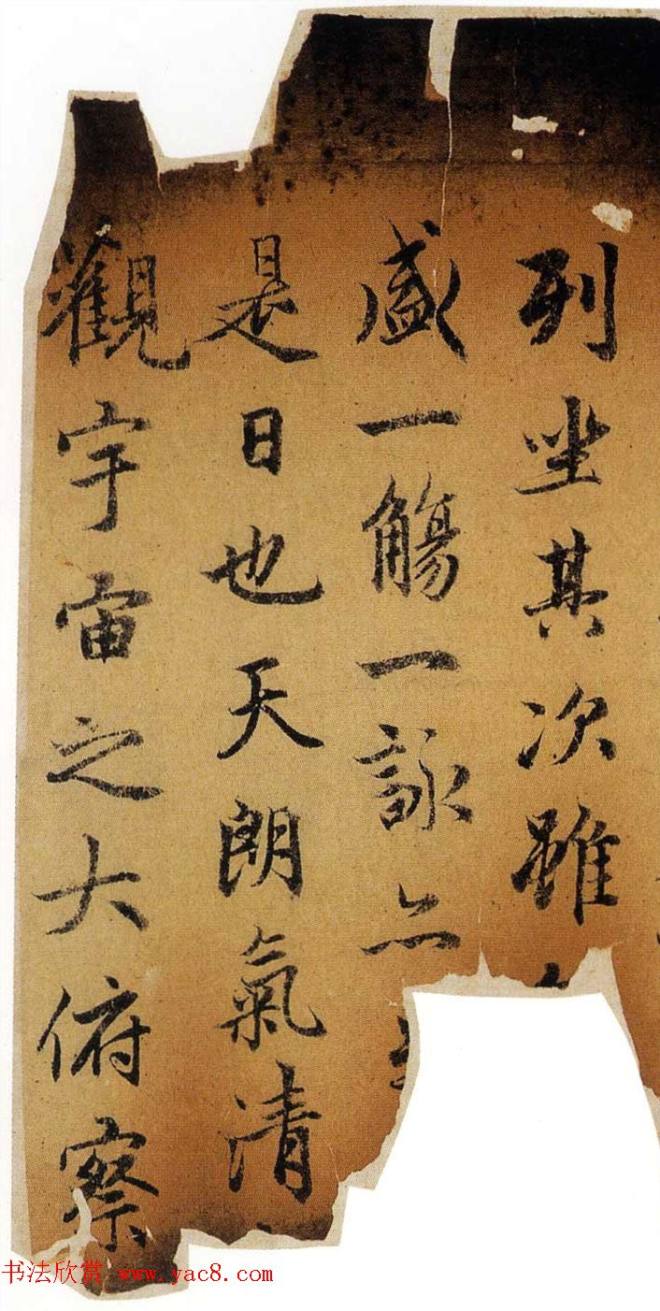 列坐其次雖
盛一觴一詠亦
是日也天朗氣清
觀宇宙之大俯察
书法欣赏 www.yac8.com